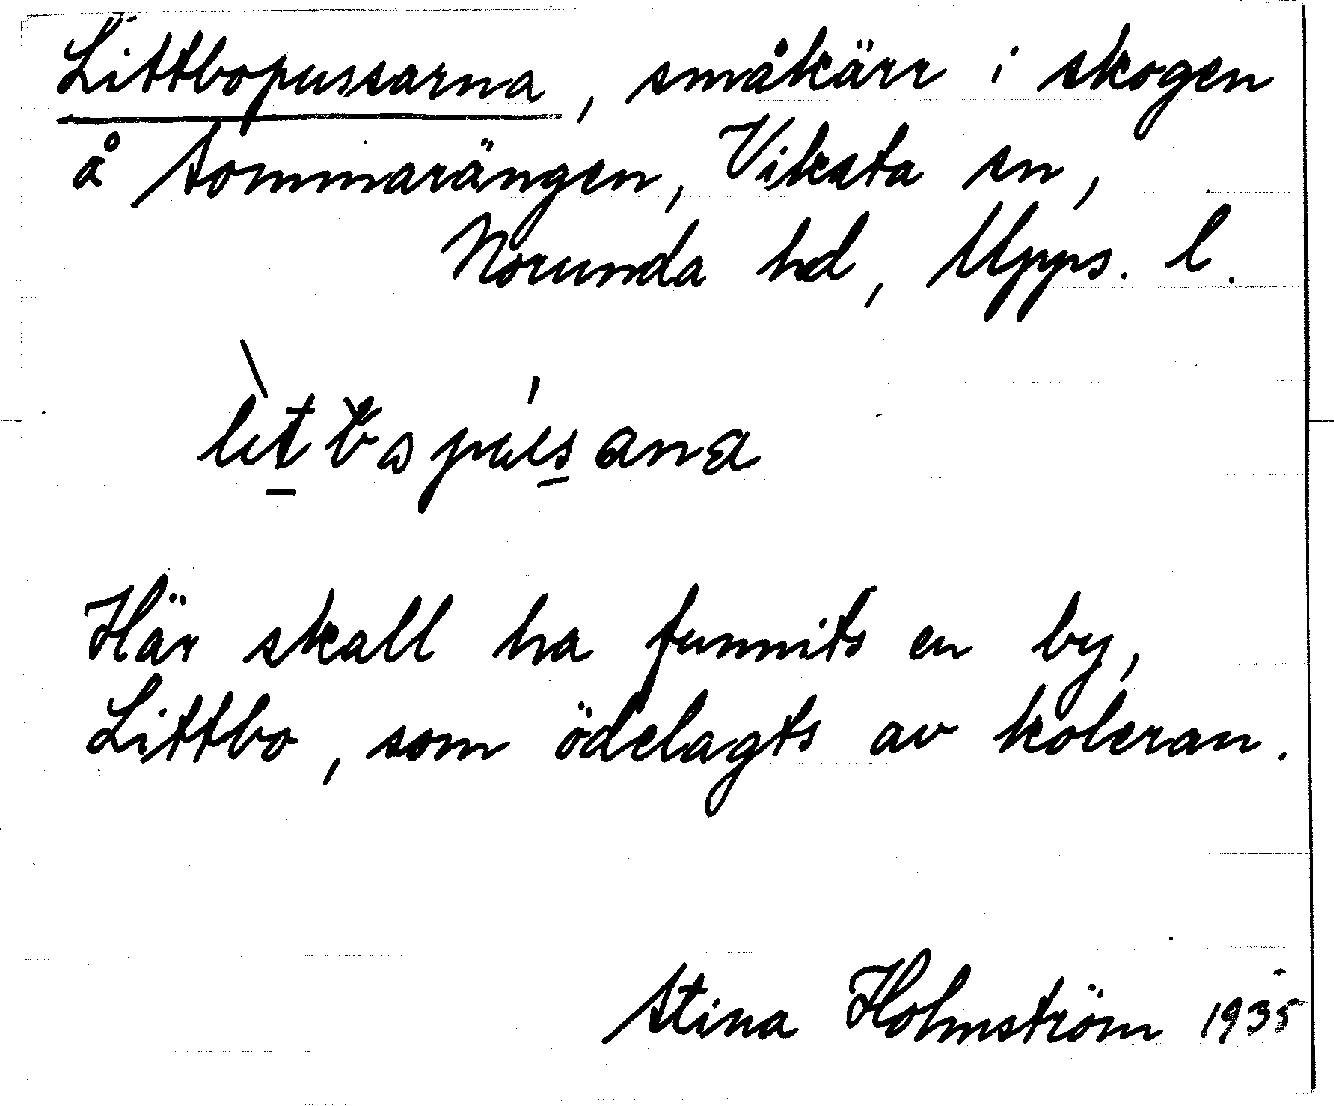 Littbopussarna, småkärr i skogen
å Sommarängen, Viksta sn,
Norunda hd, Upps. l.
Här skall ha funnits en by,
Littbo, som ödelagts av koleran.
Stina Holmström 1935